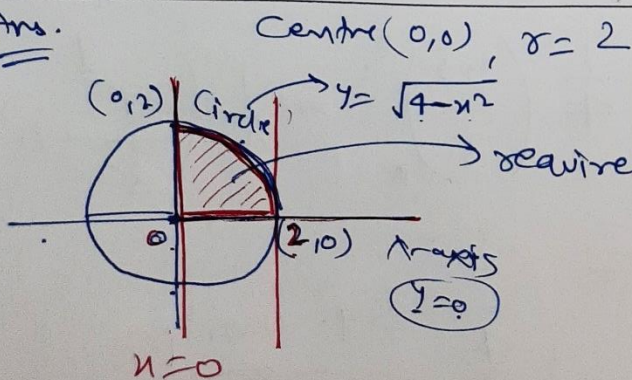 Ans.
Centre (0,0), r = 2
(0,2) Circle y = √4-x²
require
0 (2,0) x-axis
y=0
x=0